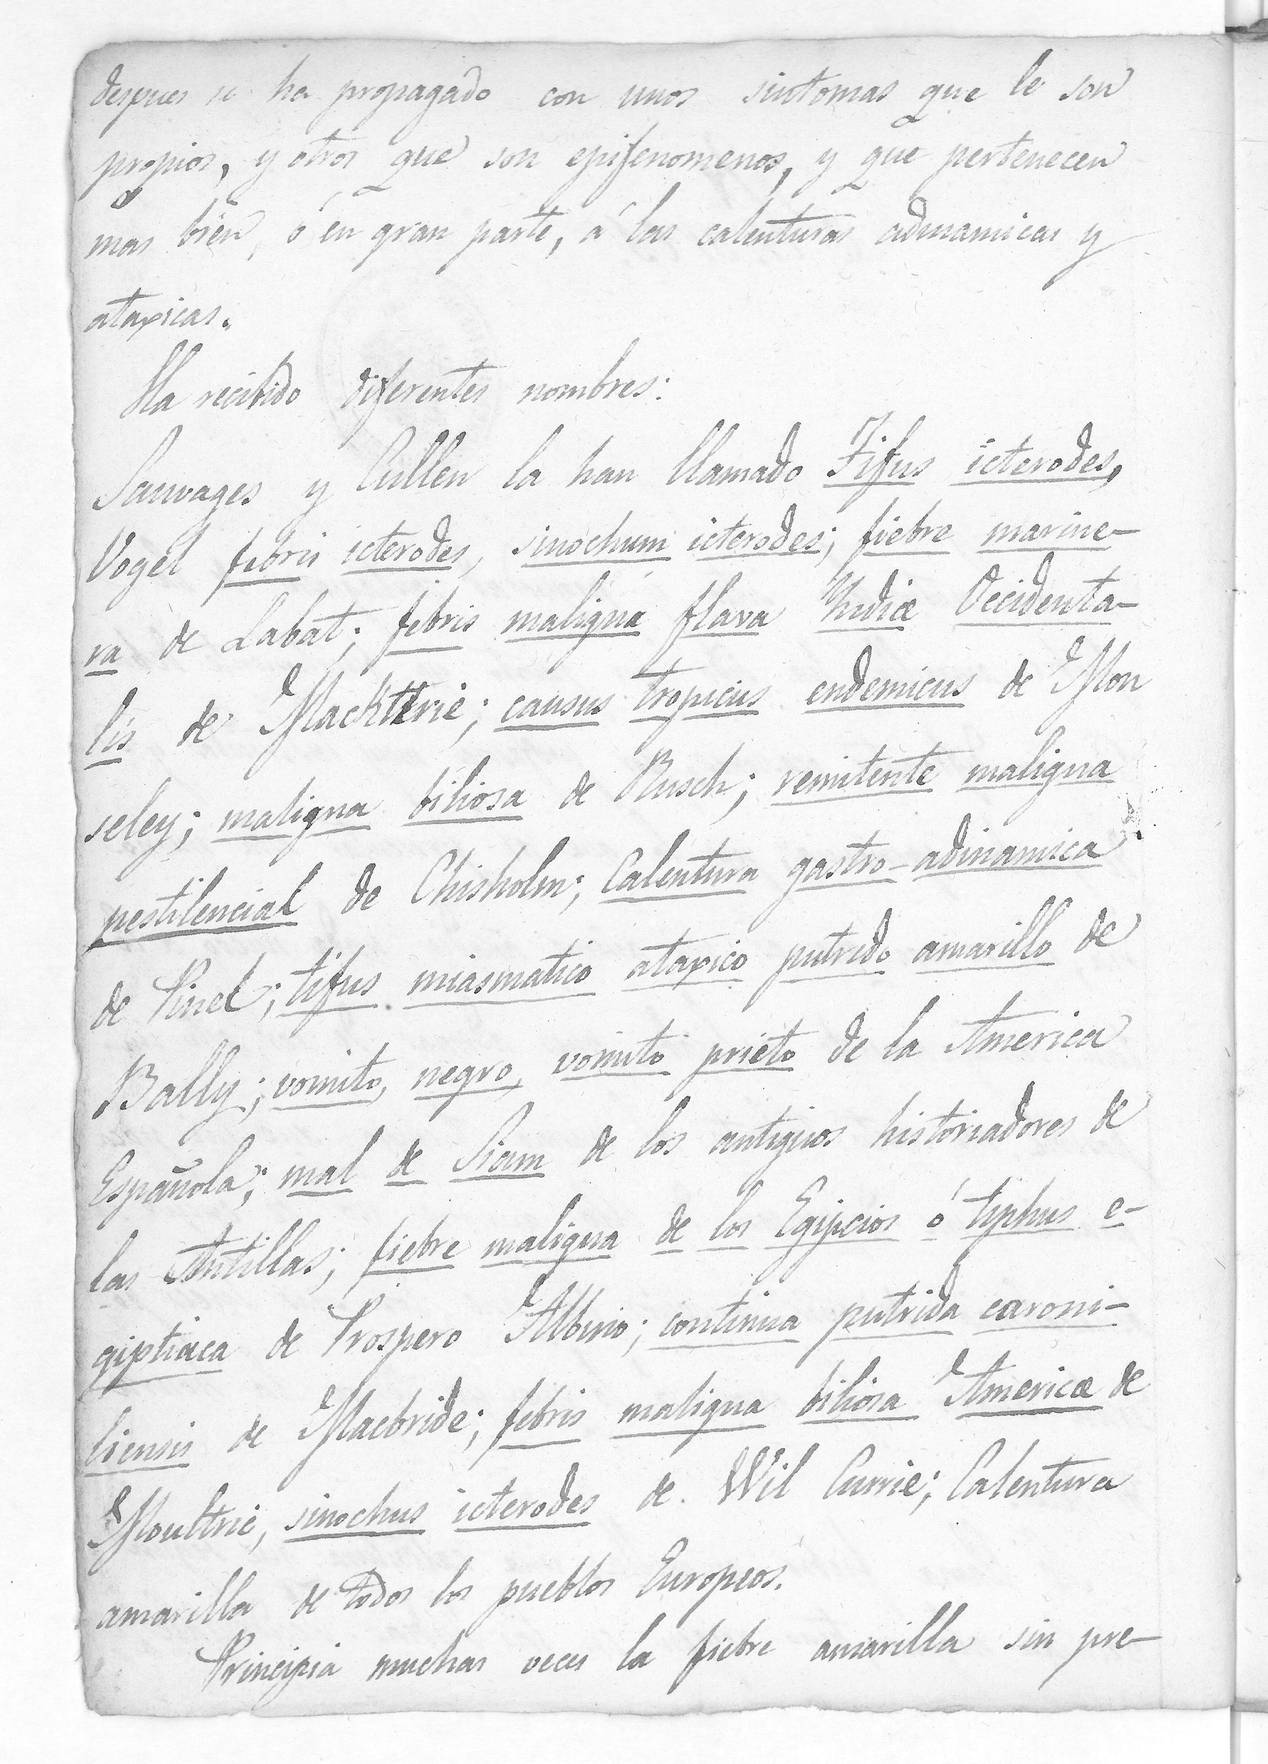 despues se ha propagado con unos sintomas que le son
propios, y otros que son epifenomenos, y que pertenecen
mas bien, ó en gran parte, á las calenturas adinamicas y
ataxicas.
Ha recibido diferentes nombres:
Sauvages y Cullen la han llamado Tifus icterodes,
Vogel febris icterodes, sinochum icterodes; fiebre marine-
ra de Labat; febris maligna flava Indiæ Occidenta-
lis de Macktrie; causus tropicus endemicus de Mon
seley; maligna biliosa de Rusch; remitente maligna
pestilencial de Chisholm; Calentura gastro-adinamica
de Pinel; tifus miasmatico ataxico putrido amarillo de
Bally; vomito, negro, vomito prieto de la America
Española; mal de Siam de los antiguos historiadores de
las Antillas; fiebre maligna de los Egipcios ó typhus e-
giptiaca de Prospero Albino; continua putrida caroni-
liensis de Macbride; febris maligna biliosa Americæ de
Moultrie, sinochus icterodes de. Wil Currie; Calentura
amarilla de todos los pueblos Europeos.
Principia muchas veces la fiebre amarilla sin pre-